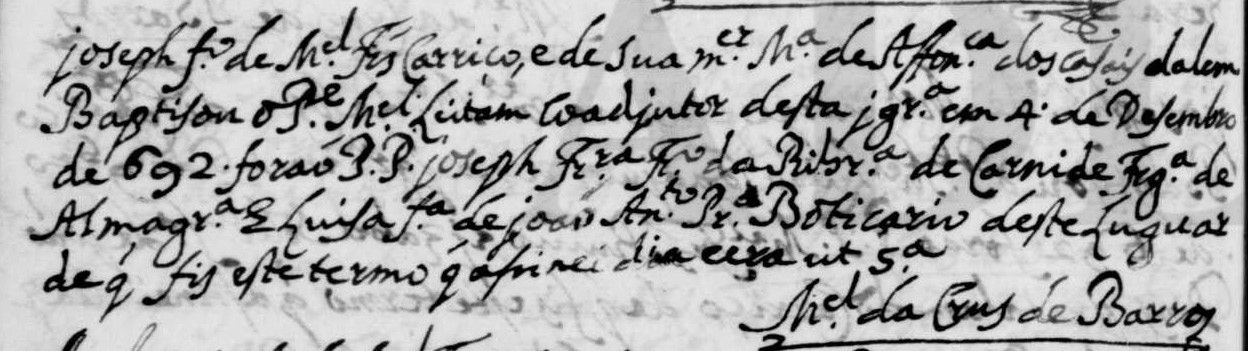 joseph f.º de M.el Frz Carriço, e de sua m.er M.ª de Affon.ca dos Casais dalem
Baptisou o P.e M.el Leitam Coadjutor desta jgr.ª em 4 de Desembro
de 692. foraõ P.P. joseph Fr.ra da Ribr.ª de Carnide Frg.ª de
Almagr.ª E Luisa f.ª de joaõ An.to Pr.ª Boticario deste Luguar
de q̃ fis este termo q̃ asinei dia e era ut s.ª
M.el da Crus de Barros